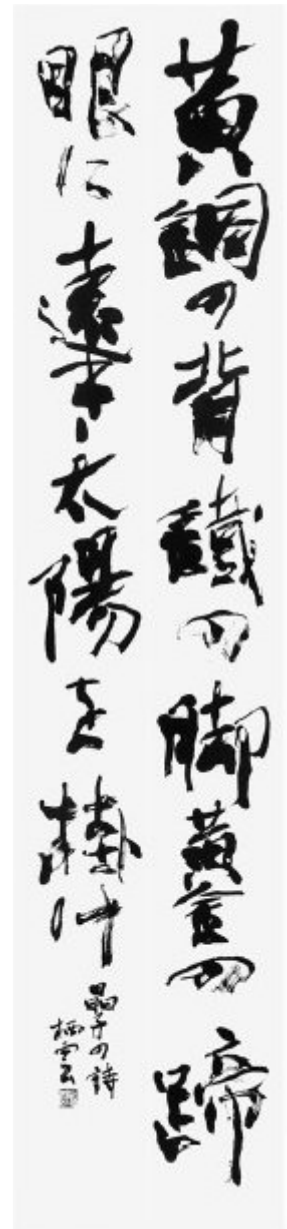 黄銅の背鐵の脚黄金の蹄
眼に遠き太陽を掛け
晶子の詩
栖雲